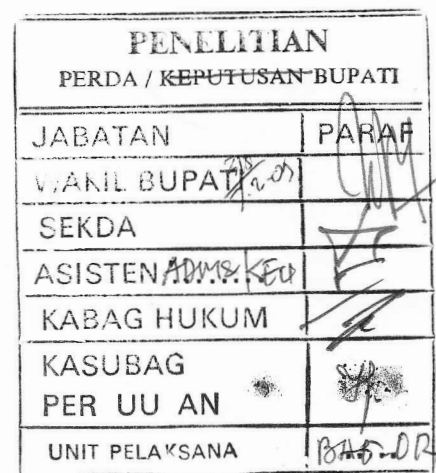 PENELITIAN
PERDA / KEPUTUSAN BUPATI
JABATAN PARAF
WAKIL BUPATI
SEKDA
ASISTEN ADMS KEU
KABAG HUKUM
KASUBAG
PER UU AN
UNIT PELAKSANA BAG. DR